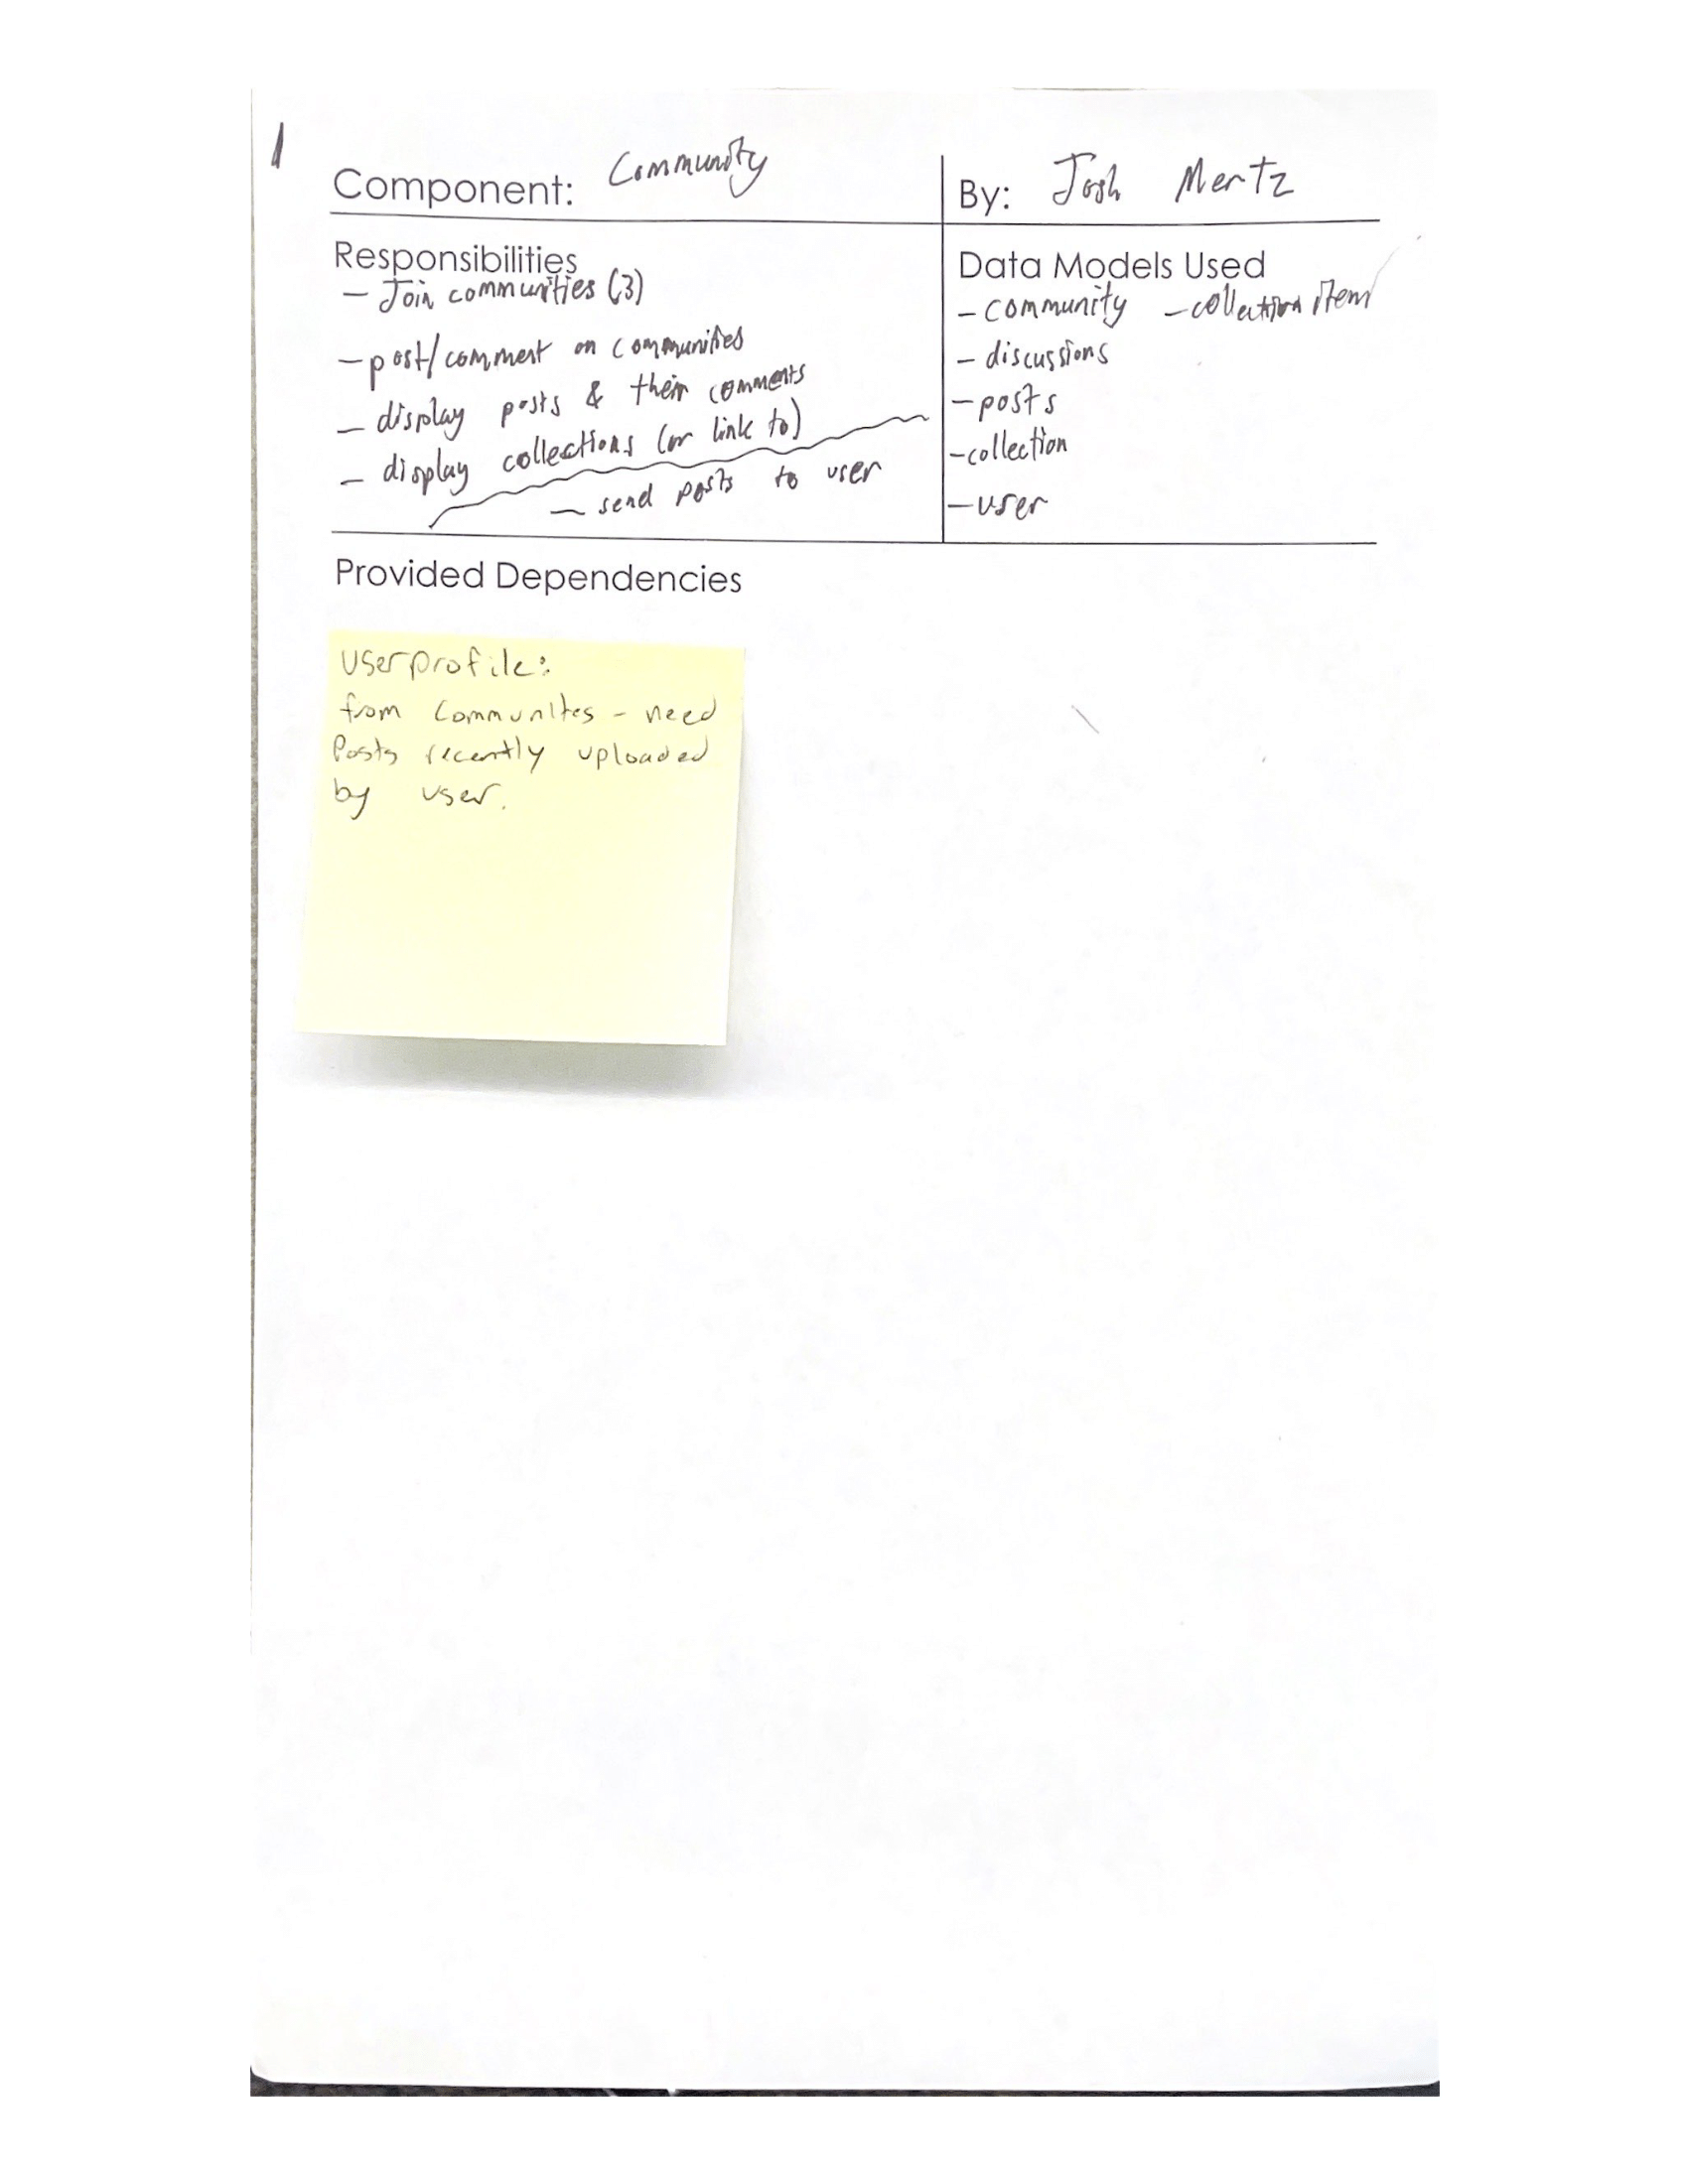 1
Component: Community
By: Josh Mertz
Responsibilities
- Join communities (3)
- post/comment on communities
- display posts & their comments
- display collections (or link to)
- send posts to user
Data Models Used
- community - collection item
- discussions
- posts
- collection
- user
Provided Dependencies
userprofile:
from Communites - need
Posts recently uploaded
by user.